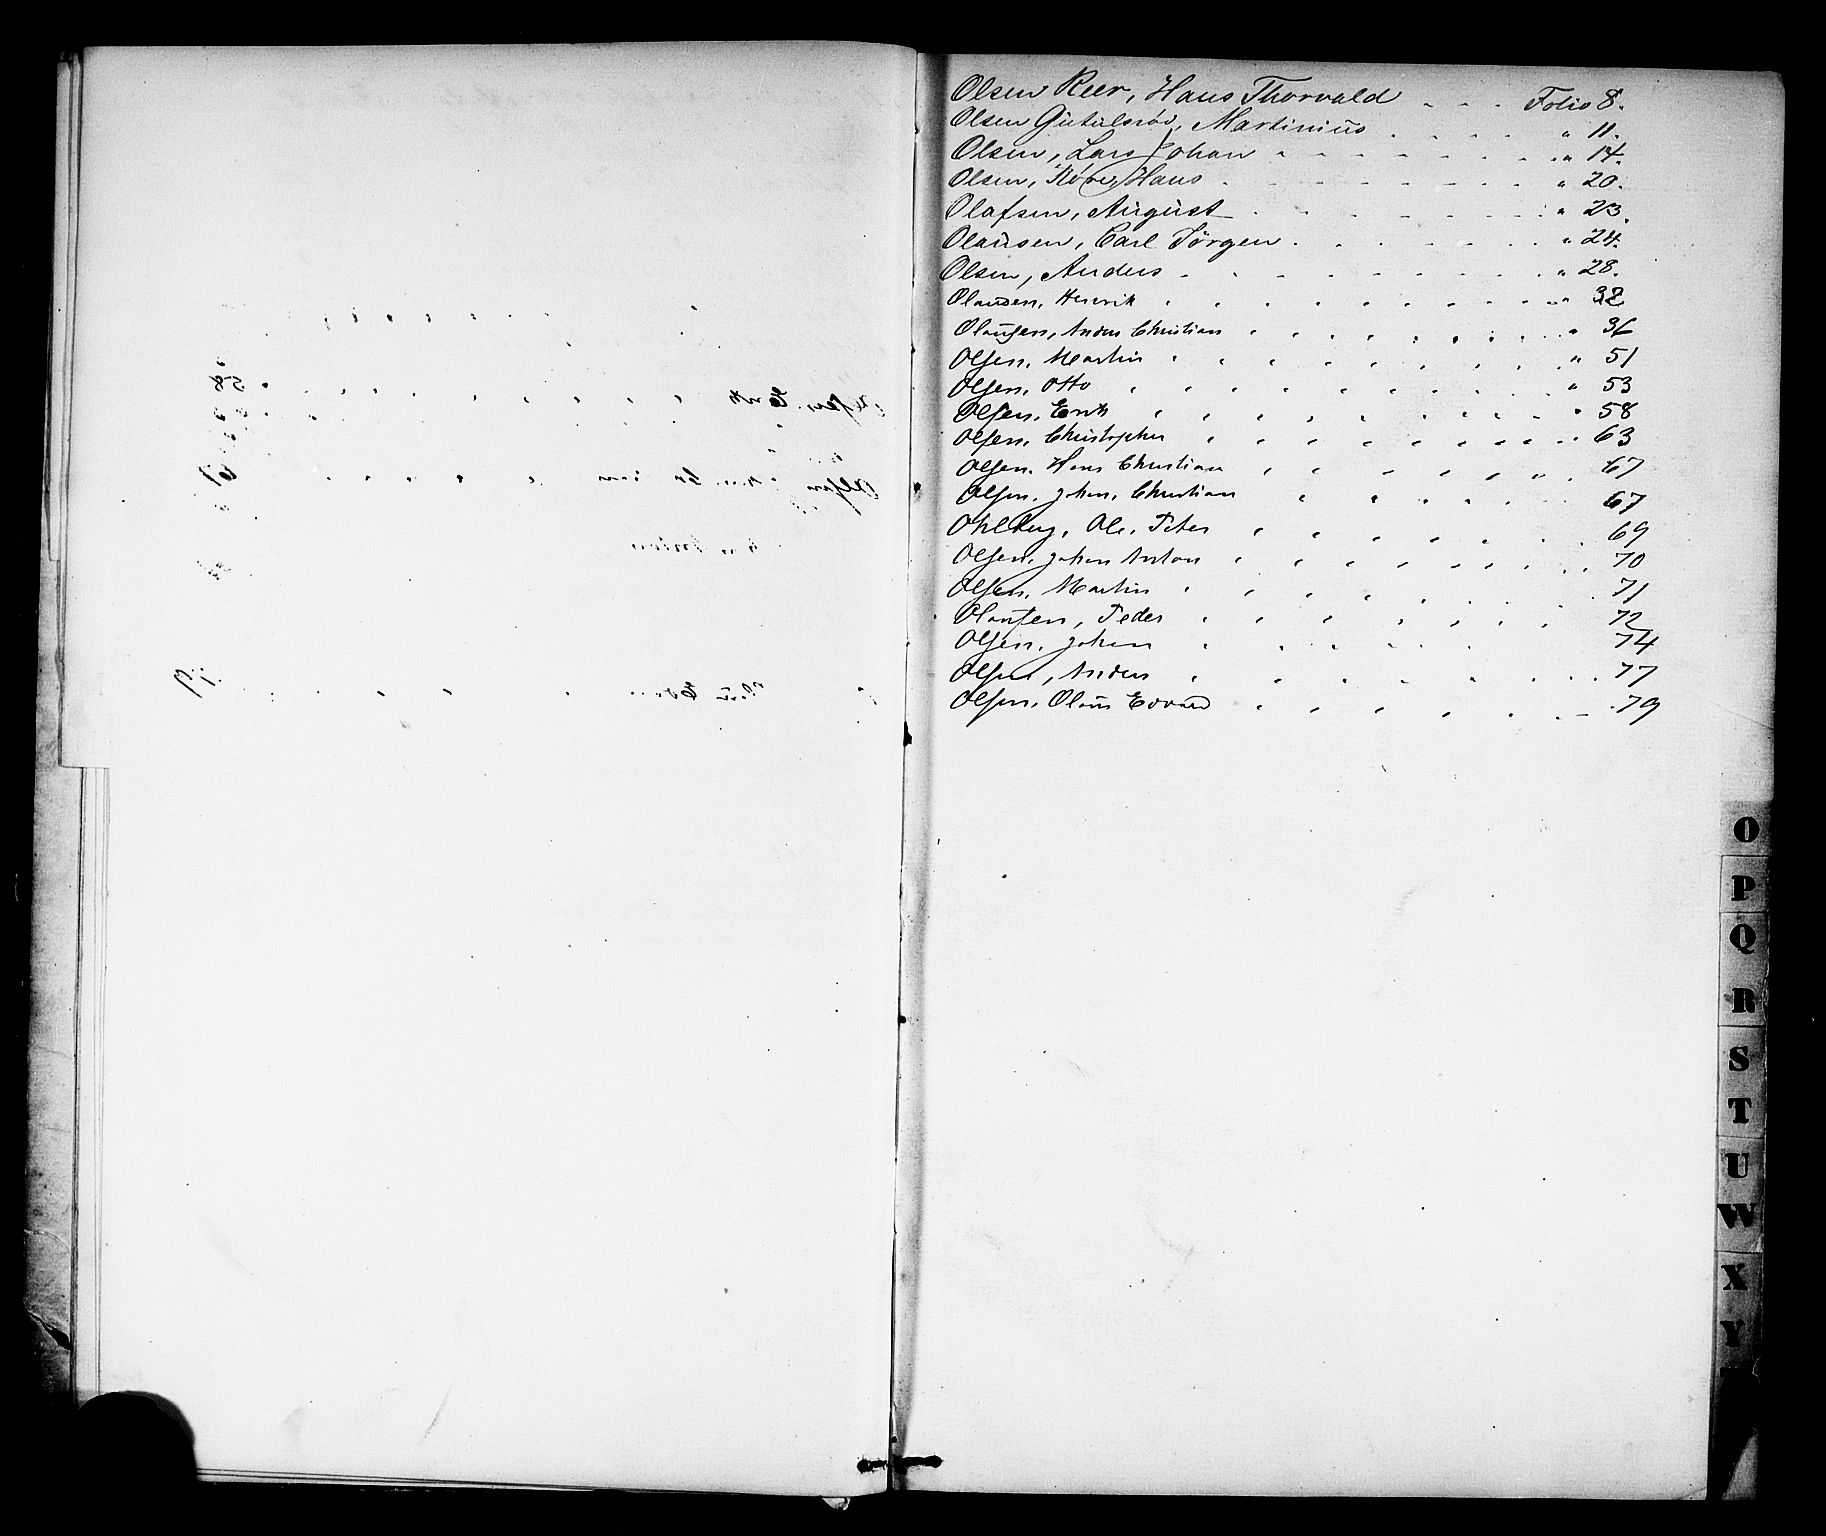 Olsen Reer, Hans Thorvald - - - Folio 8.
Olsen Gutulsrød, Martinius . . . . " 11.
Olsen, Lars Johan . . . . " 14.
Olsen, Høre, Hans . . . . " 20.
Olafsen, August . . . . " 23.
Olausen, Carl Jörgen . . . . " 24.
Olsen, Anders . . . . " 28.
Olausen, Henrik . . . . " 32
Olausen, Anders Christian . . . . " 36
Olsen, Martin . . . . " 51
Olsen, Otto . . . . " 53
Olsen, Erik . . . . " 58
Olsen, Christopher . . . . 63
Olsen, Hans Christian . . . . " 67
Olsen, Johan, Christian . . . . 67
Ohlberg, Ole, Peter . . . . 69
Olsen, Johan Anton . . . . 70
Olsen, Martin . . . . 71
Olausen, Peder . . . . 72
Olsen, Johan . . . . 74
Olsen, Anders . . . . 77
Olsen, Olaus Edvard . . . . 79
O
P
Q
R
S
T
U
W
X
Y